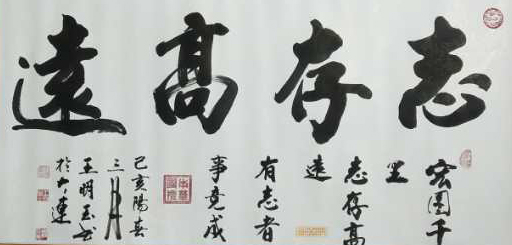 志存高遠
宏图千
里
志存高
遠
有志者
事竟成
己亥陽春
三月
王明玉书
於大連